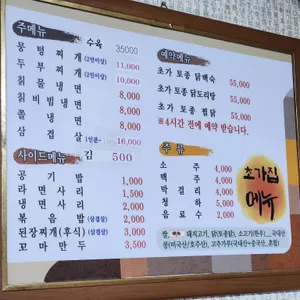 주메뉴
수육 35000
몽텅찌개(2인이상) 11,000
두부찌개(2인이상) 10,000
칡물냉면 8,000
칡비빔냉면 8,000
쫄면 8,000
삼겹살 1인분- 16,000
사이드메뉴
김 500
공기밥 1,000
라면사리 1,500
냉면사리 2,000
볶음밥(삼겹살) 2,000
된장찌개(후식)(삼겹살) 3,000
꼬마만두 3,500
예약메뉴
초가 토종 닭백숙 55,000
초가 토종 닭도리탕 55,000
초가 토종 찜닭 55,000
※4시간 전에 예약 받습니다.
주류
소주 4,000
맥주 4,000
막걸리 4,000
청하 5,000
음료수 2,000
초가집
메뉴
쌀, 돼지고기, 닭(토종닭), 소고기(한우)__국내산
콩(미국산/호주산), 고추가루(국내산+중국산_혼합)